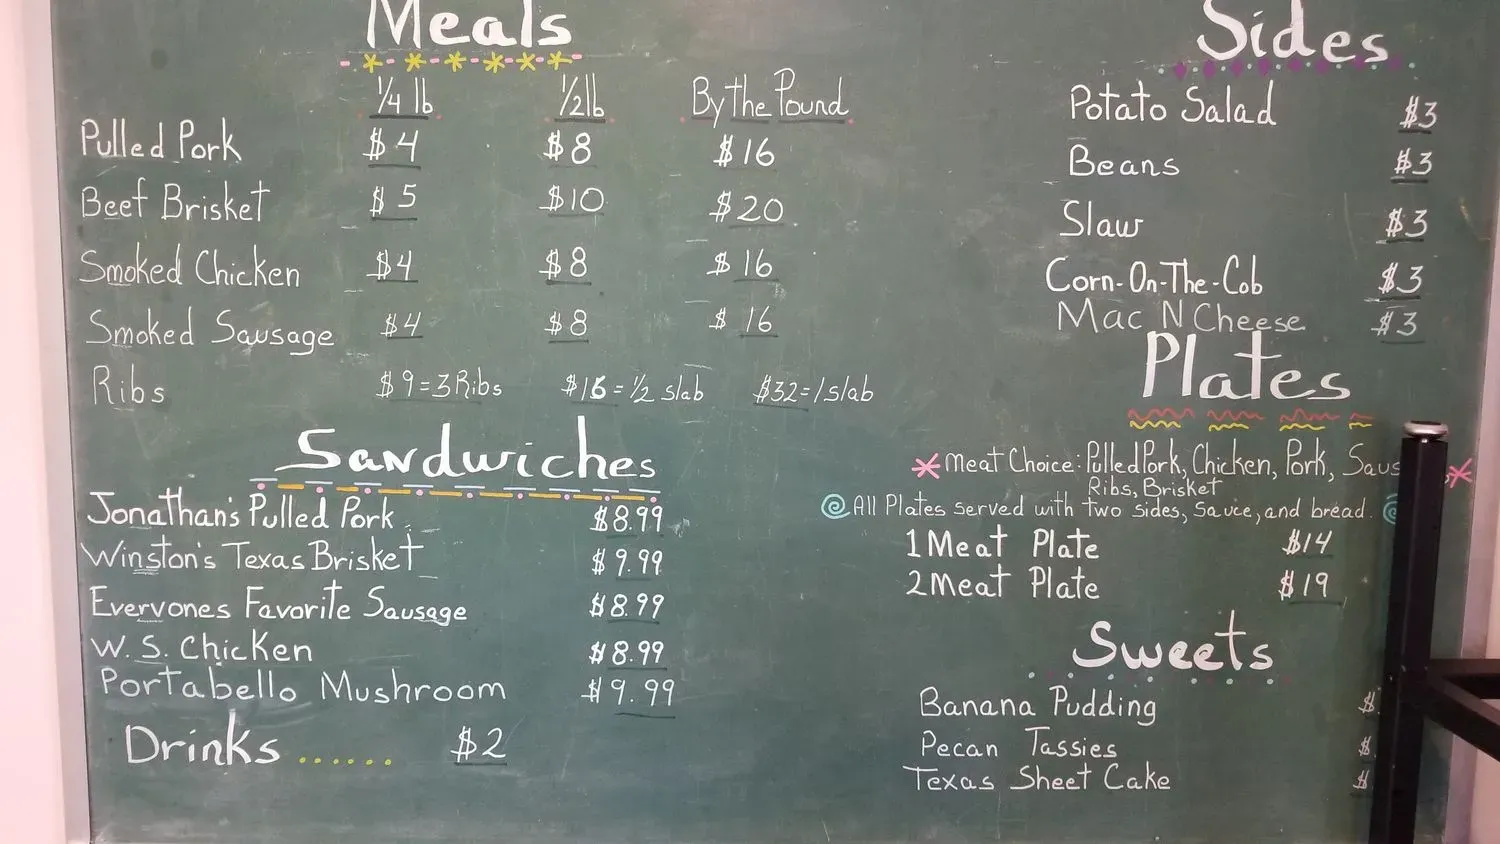 Meals
1/4 lb 1/2 lb By the Pound
Pulled Pork $4 $8 $16
Beef Brisket $5 $10 $20
Smoked Chicken $4 $8 $16
Smoked Sausage $4 $8 $16
Ribs $9=3 Ribs $16=1/2 slab $32=1 slab
Sandwiches
Jonathan's Pulled Pork $8.99
Winston's Texas Brisket $9.99
Everyones Favorite Sausage $8.99
W. S. Chicken $8.99
Portabello Mushroom $9.99
Drinks ...... $2
Sides
Potato Salad $3
Beans $3
Slaw $3
Corn-On-The-Cob $3
Mac N Cheese $3
Plates
*Meat Choice: Pulled Pork, Chicken, Pork, *
Ribs, Brisket
All Plates served with two sides, sauce, and bread.
1 Meat Plate $14
2 Meat Plate $19
Sweets
Banana Pudding $
Pecan Tassies $
Texas Sheet Cake $